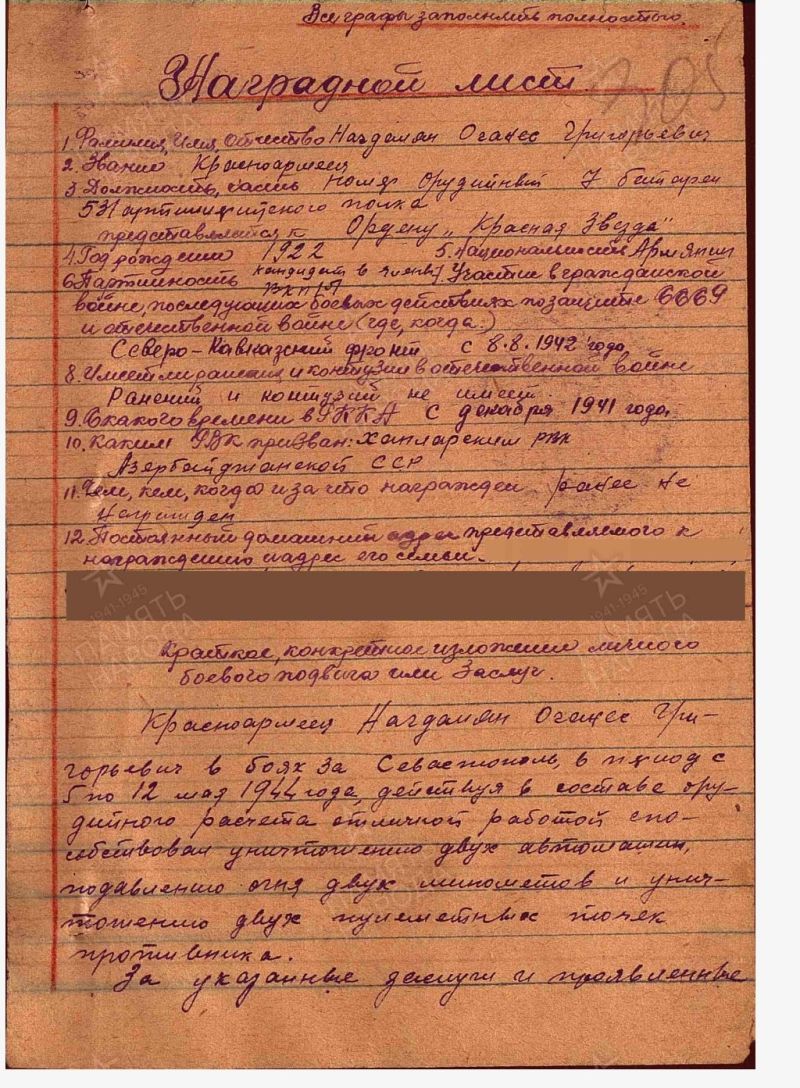 Все графы заполнять полностью.
Наградной лист
1. Фамилия, Имя, Отчество Нагдалян Оганес Григорьевич
2. Звание Красноармеец
3. Должность, часть номер Орудийный 7 батареи
531 артиллерийского полка
представляется к Ордену „Красная Звезда"
4. Год рождения 1922 5. Национальность Армянин
6. Партийность кандидат в члены 7. Участие в гражданской
ВКП(б)
войне, последующих боевых действиях по защите СССР
и отечественной войне (где, когда.)
Северо-Кавказский фронт с 8.8.1942 года
8. Имеет ли ранения и контузии в отечественной войне
Ранений и контузий не имеет.
9. С какого времени в РККА с декабря 1941 года.
10. Каким РВК призван: Ханларским рвк
Азербайджанской ССР
11. Чем, кем, когда и за что награжден ранее не
награжден
12. Постоянный домашний адрес представляемого к
награждению и адрес его семьи.
1941-1945
ПАМЯТЬ
НАРОДА
Краткое, конкретное изложение личного
боевого подвига или Заслуг.
Красноармеец Нагдалян Оганес Гри-
горьевич в боях за Севастополь, в период с
5 по 12 мая 1944 года, действуя в составе ору-
дийного расчета отличной работой спо-
собствовал уничтожению двух автомашин,
подавлению огня двух минометов и унич-
тожению двух пулеметных точек
противника.
За указанные заслуги и проявленные